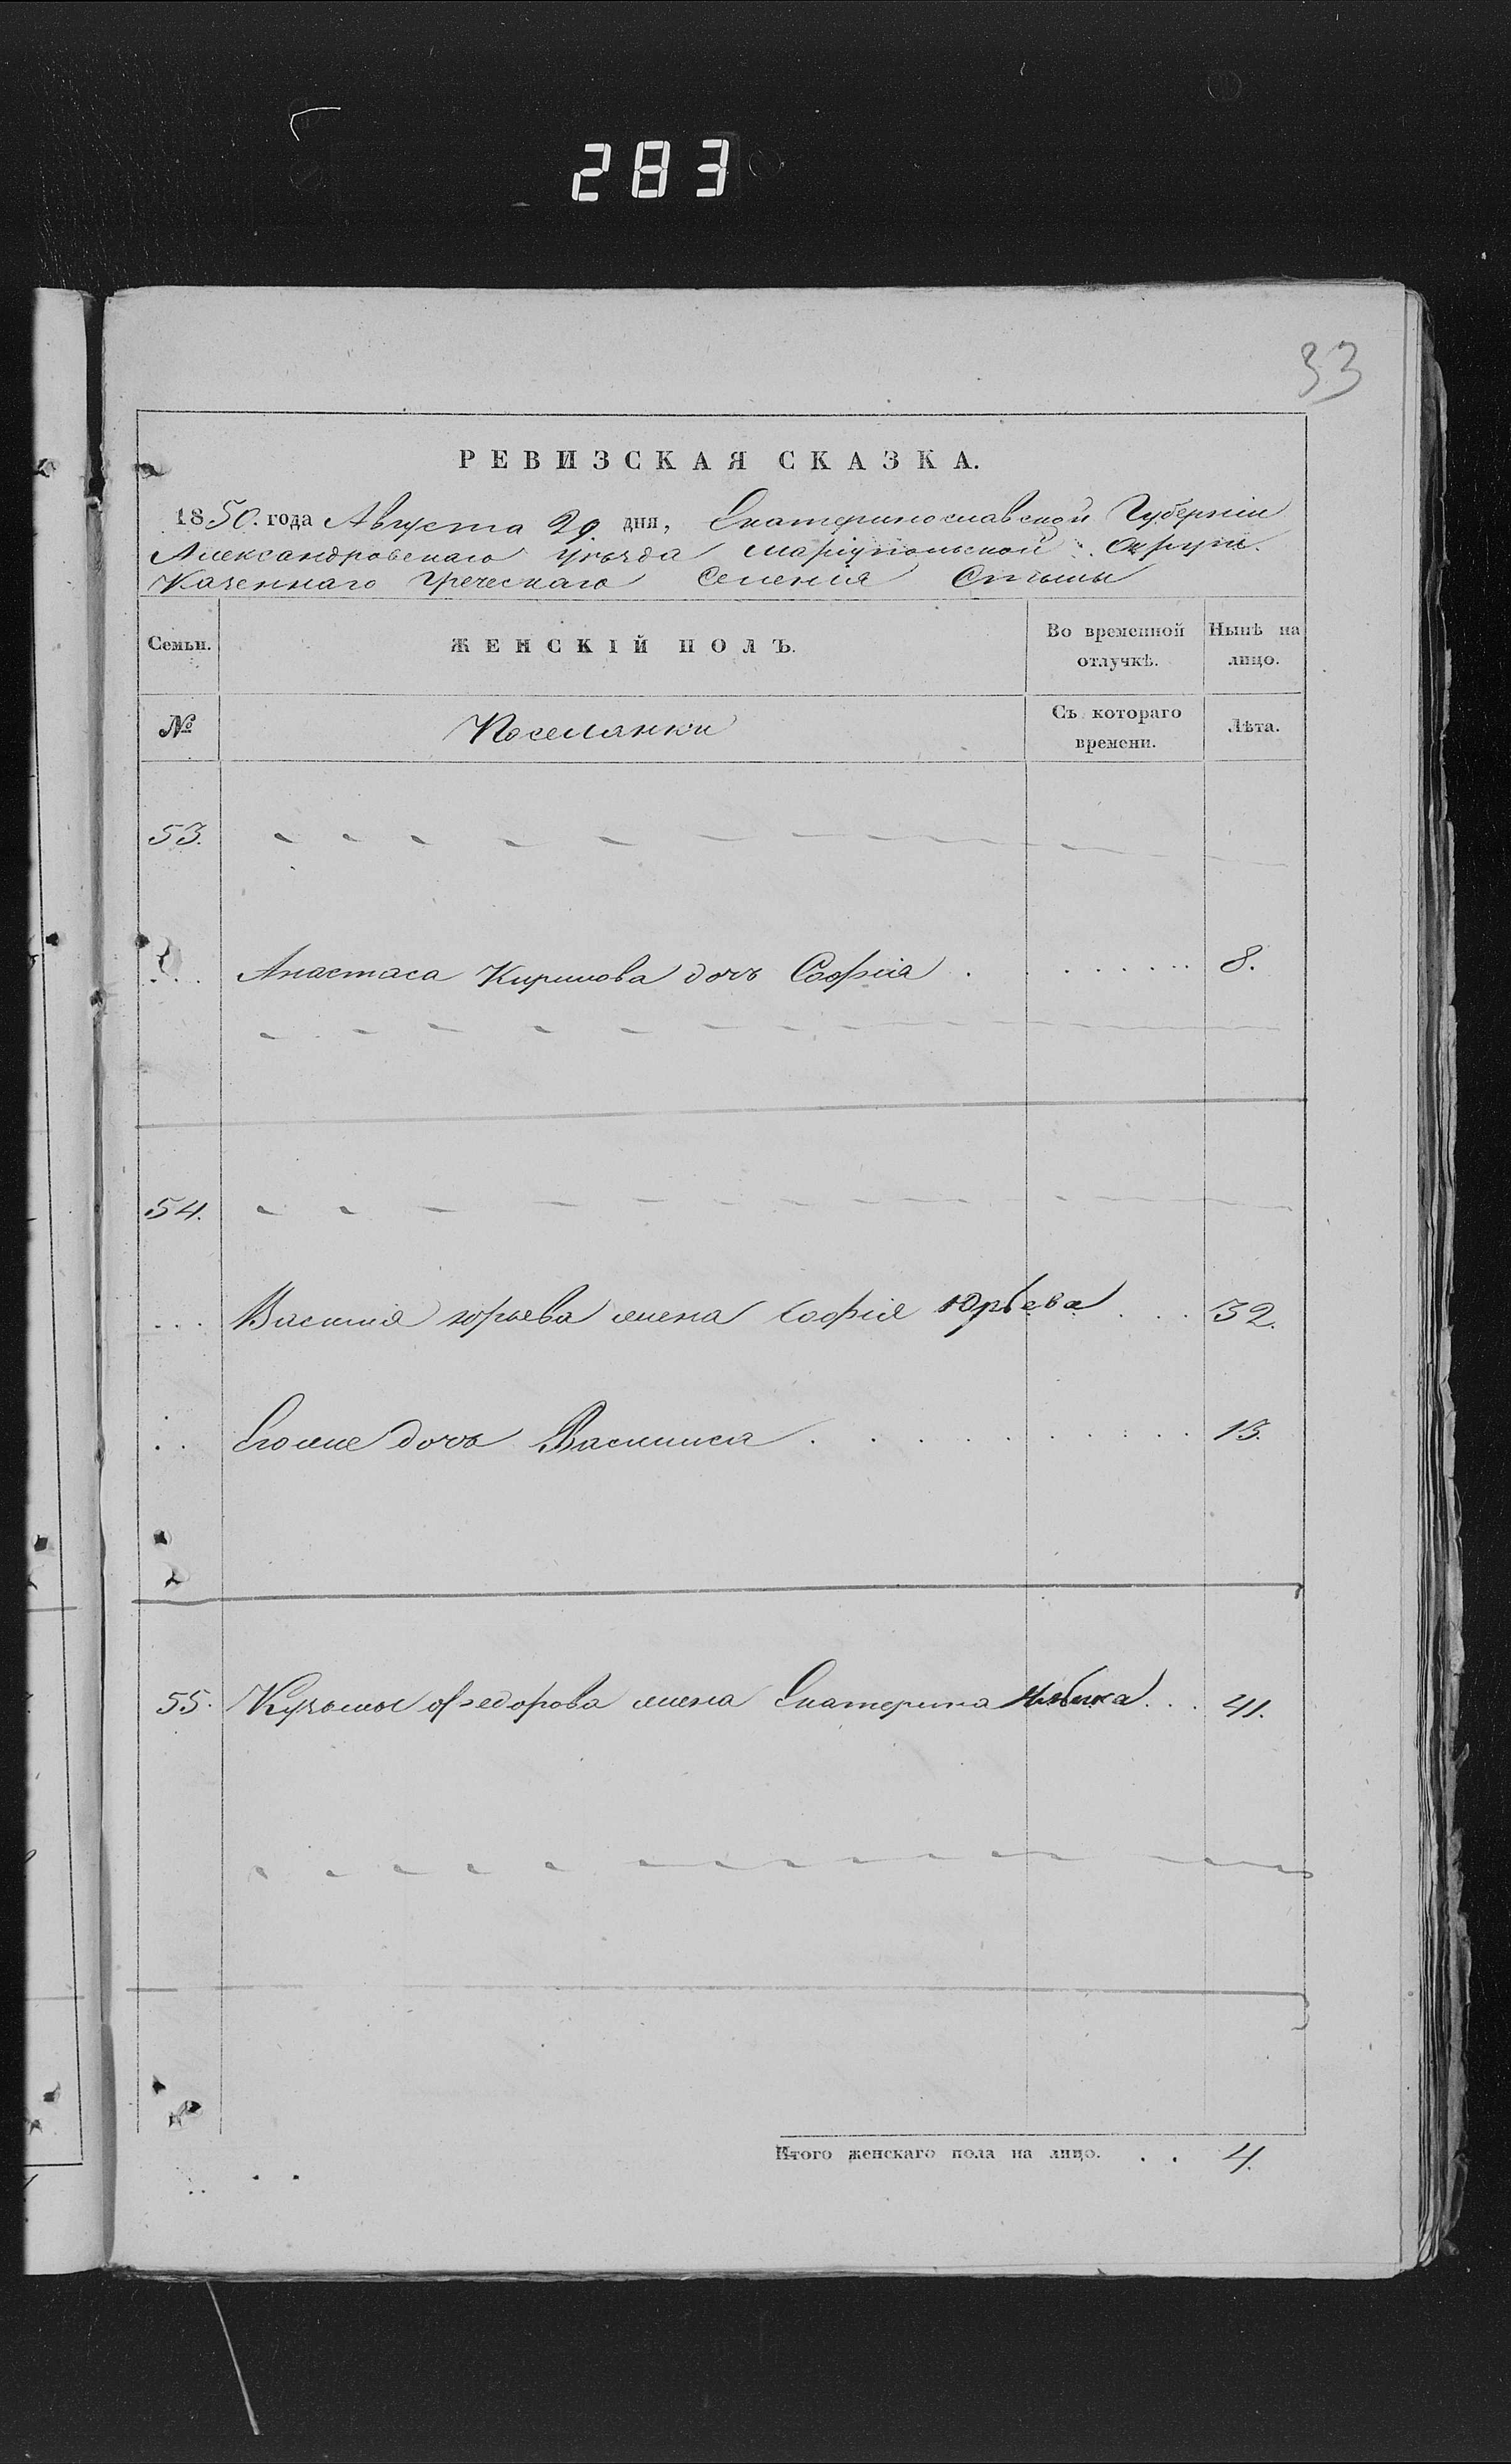 283
33
РЕВИЗСКАЯ СКАЗКА.
1850. года Августа 29 дня, Екатеринославской Губерніи
Александровскаго уѣзда Маріупольской Округи.
Казеннаго Греческаго Селенія Стылы
Семьи. ЖЕНСКІЙ ПОЛЪ. Во временной отлучкѣ. Нынѣ на лицо.
№ Поселянки Съ котораго времени. Лѣта.
53.
Анастаса Кирилова дочь Софія 8.
54.
Василія Юрьева жена Софія Юрьева 32.
Егоже дочь Василиса 13.
55. Кузьмы Федорова жена Екатерина 41.
Итого женскаго пола на лицо. . . 4.